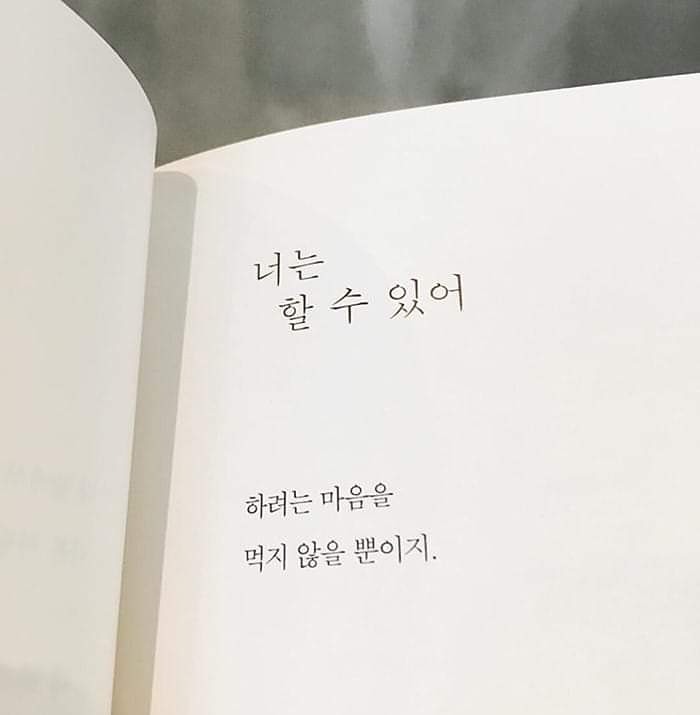 너는
할 수 있어
하려는 마음을
먹지 않을 뿐이지.